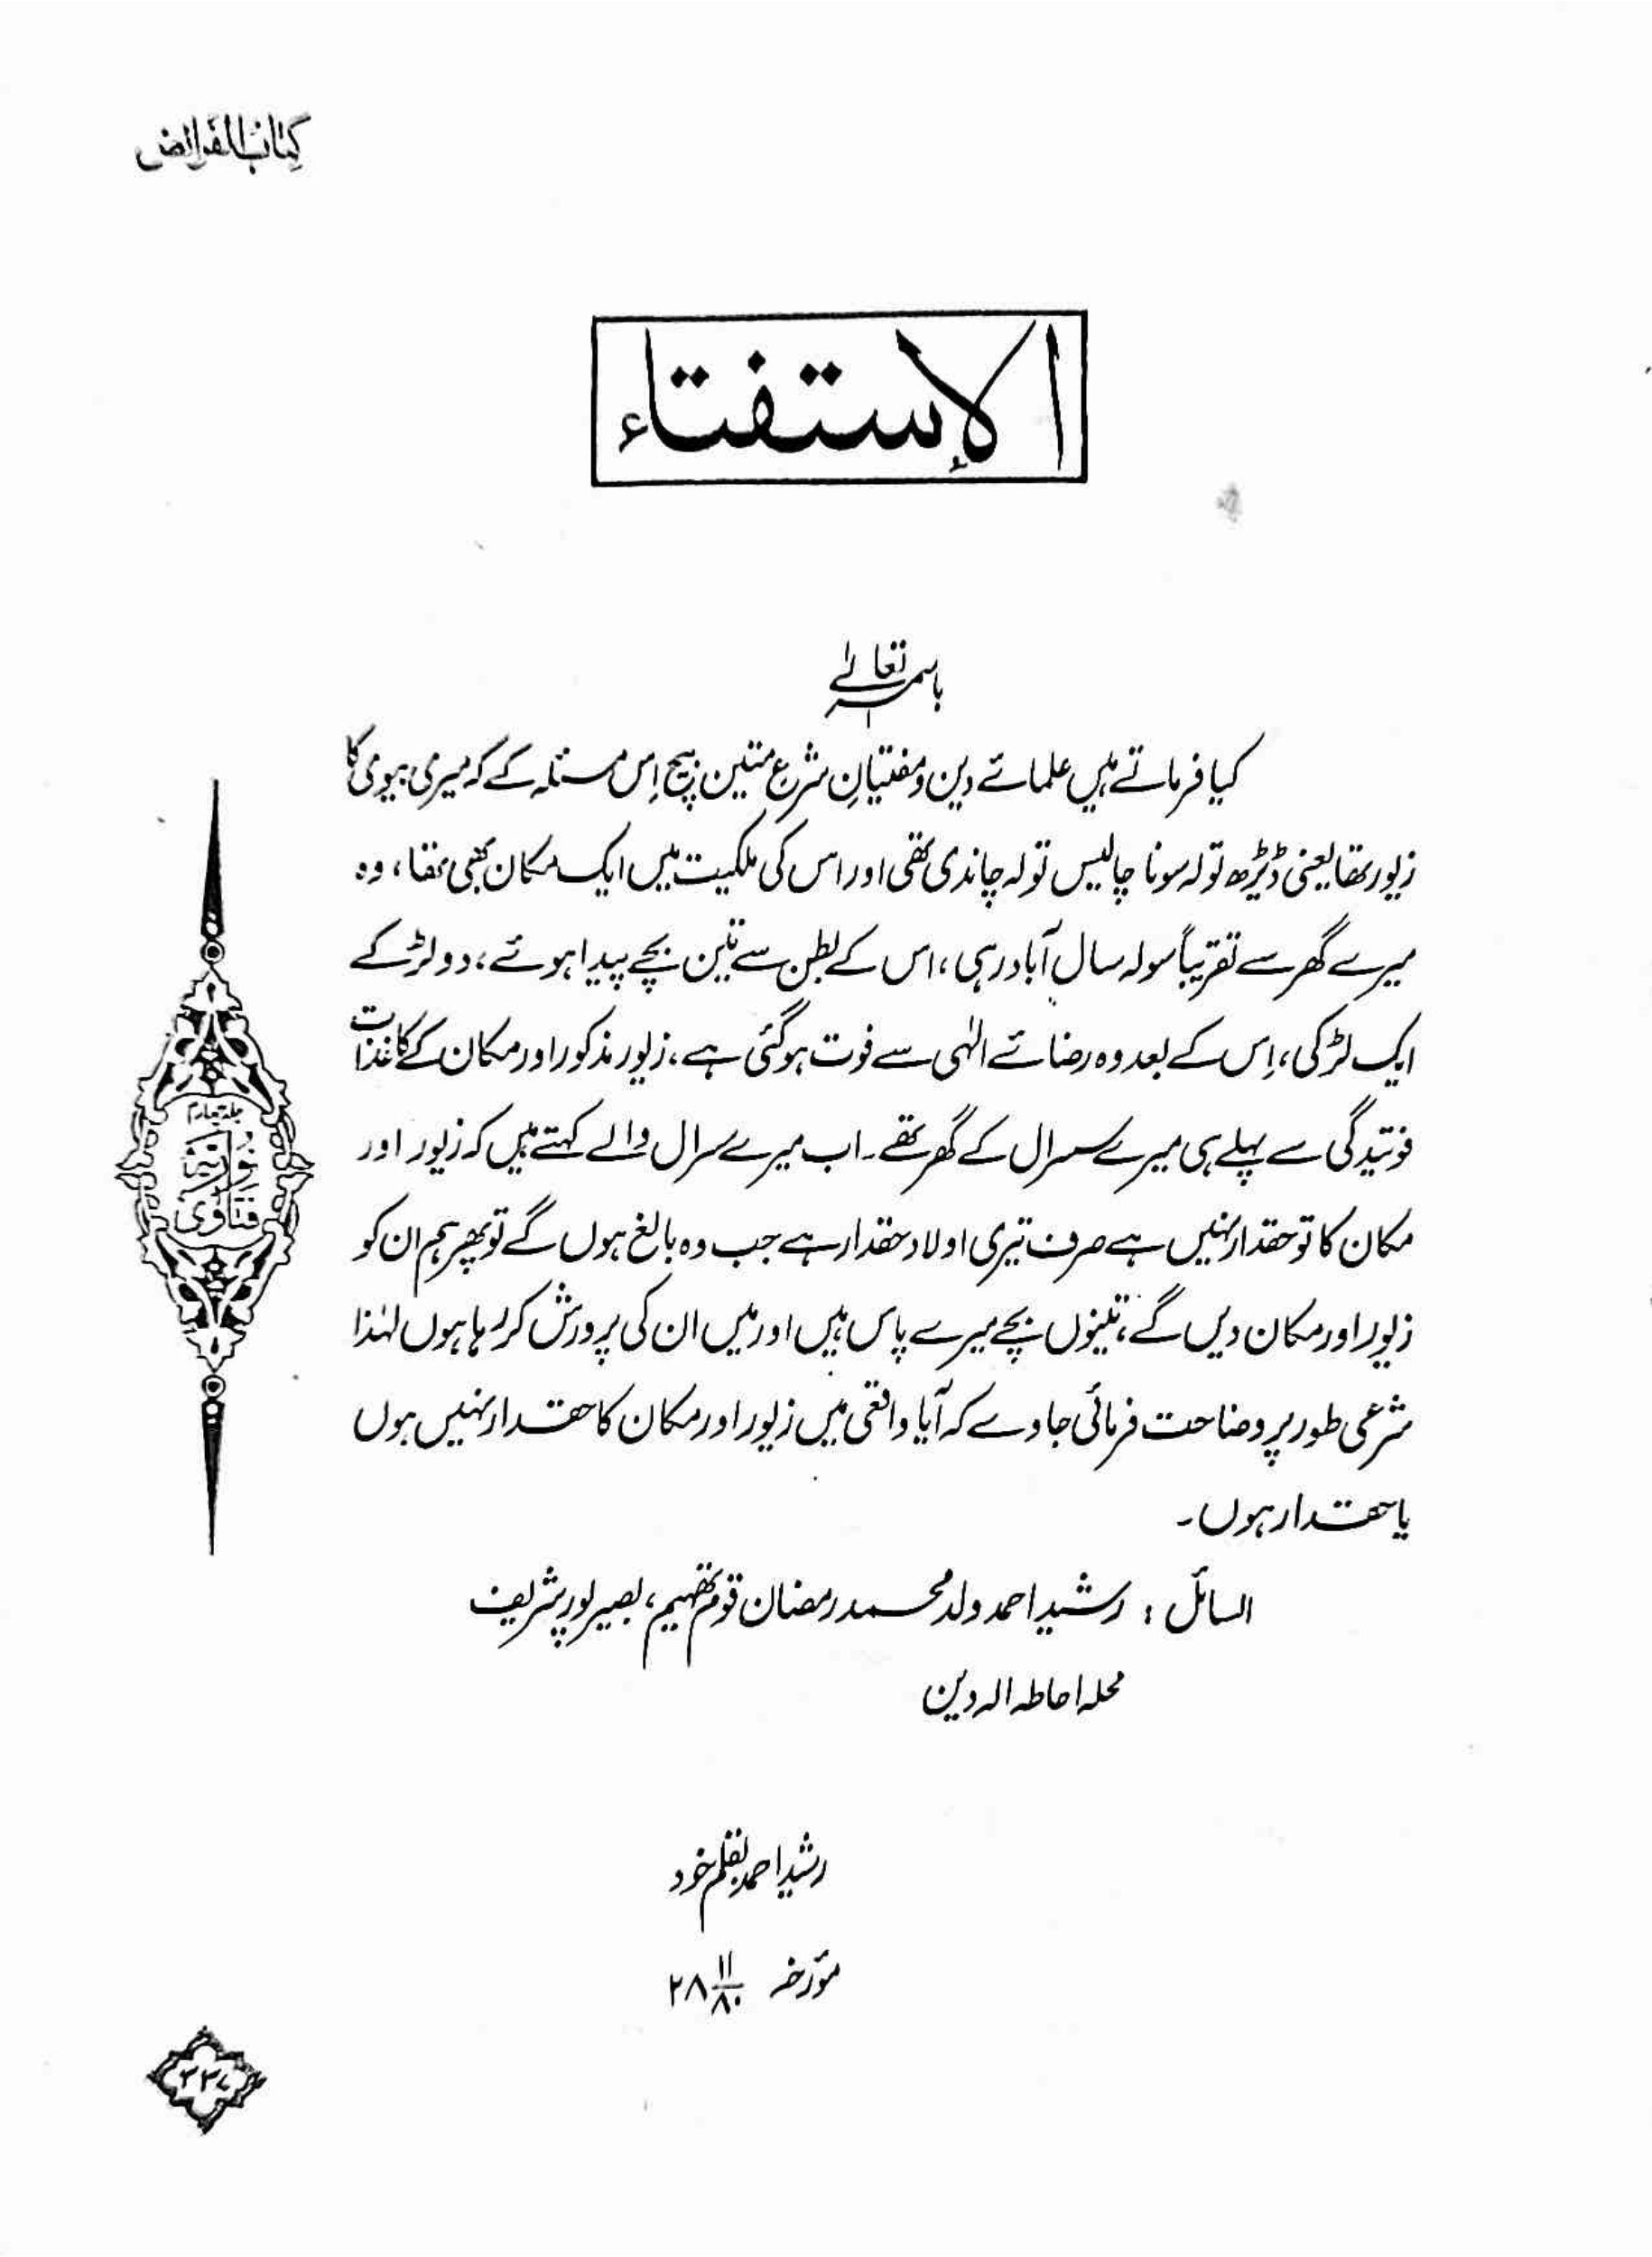 کتاب الفرائض
الإستفتاء
باسمہٖ تعالےٰ
کیا فرماتے ہیں علمائے دین و مفتیانِ شرع متین بیچ اِس مسئلہ کے کہ میری بیوی کا
زیور تھا یعنی ڈیڑھ تولہ سونا چالیس تولہ چاندی تھی اور اس کی ملکیت میں ایک مکان بھی تھا، وہ
میرے گھر سے تقریباً سولہ سال آباد رہی، اس کے بطن سے تین بچے پیدا ہوئے، دو لڑکے
ایک لڑکی، اِس کے بعد وہ رضائے الٰہی سے فوت ہوگئی ہے، زیور مذکور اور مکان کے کاغذات
فوتیدگی سے پہلے ہی میرے سسرال کے گھر تھے۔ اب میرے سسرال والے کہتے ہیں کہ زیور اور
مکان کا تو حقدار نہیں ہے صرف تیری اولاد حقدار ہے جب وہ بالغ ہوں گے تو پھر ہم ان کو
زیور اور مکان دیں گے، تینوں بچے میرے پاس ہیں اور میں ان کی پرورش کر رہا ہوں لہٰذا
شرعی طور پر وضاحت فرمائی جاوے کہ آیا واقعی میں زیور اور مکان کا حقدار نہیں ہوں
یا حقدار ہوں۔
السائل : رشید احمد ولد محمد رمضان قوم تھہیم، بصیر پور شریف
محلہ احاطہ الہ دین
رشید احمد بقلم خود
مؤرخہ ۲۸ ۱۱/۸۰
جلد چہارم
فتاویٰ نوریہ
۳۳۷